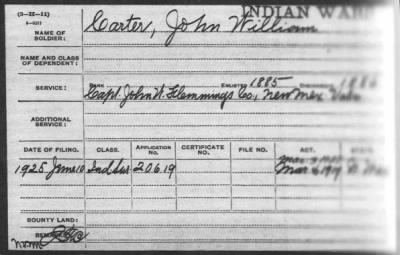 (3-H-11)
INDIAN WAR
NAME OF SOLDIER: Carter, John William
NAME AND CLASS OF DEPENDENT:
SERVICE: RANK ENLISTED 1885 DISCHARGED 1886
Capt. John W. Flemmings Co., New Mex Vols
ADDITIONAL SERVICE:
DATE OF FILING. CLASS. APPLICATION NO. CERTIFICATE NO. FILE NO. ACT.
1925 June 10 Ind Sur 20619
BOUNTY LAND: